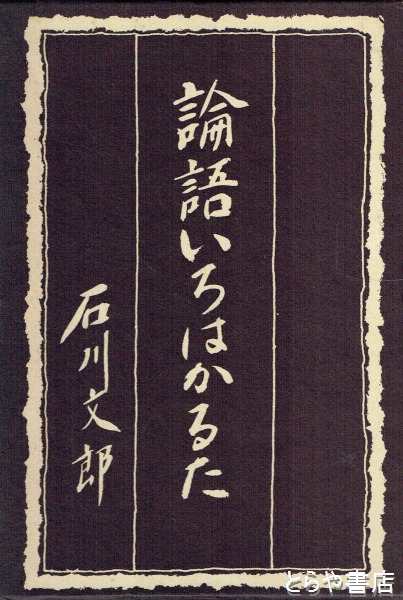 論語いろはかるた
石川文郎
とらや書店